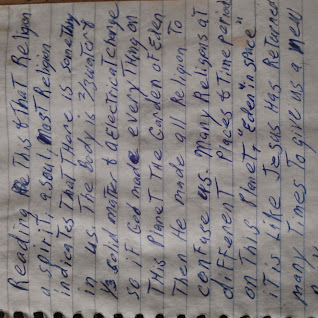 Reading the This & That Religon
a spirit, a soul, Most Religion
indicates That There is something
in us. The body is 2/3 water &
1/3 solid mater & a Electrical charge
so if God made every Thing on
This Planet The Garden of Eden
Then He made all Religion To
confuse us. Many Religons at
different Places & Time period
on This Planet, "Eden in space"
iT is Like Jesus Has Returned
many Times To give us a new